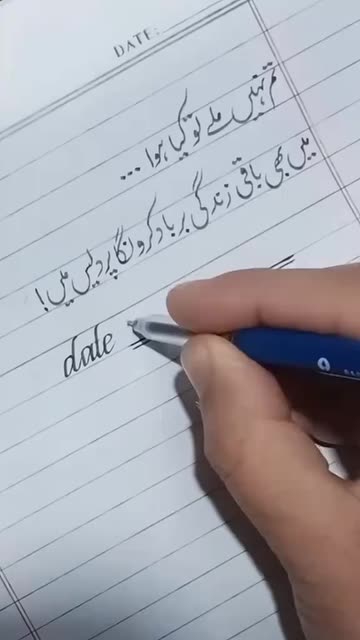 DATE:
تم نہیں ملے تو کیا ہوا ...
میں بھی باقی زندگی برباد کرونگا پردیس میں!
date